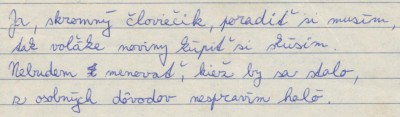 Ja, skromný človiečik, poradiť si musím,
tak voláke noviny kúpiť si skúsim.
Nebudem menovať, kiež by sa stalo,
z osobných dôvodov nespravím haló.